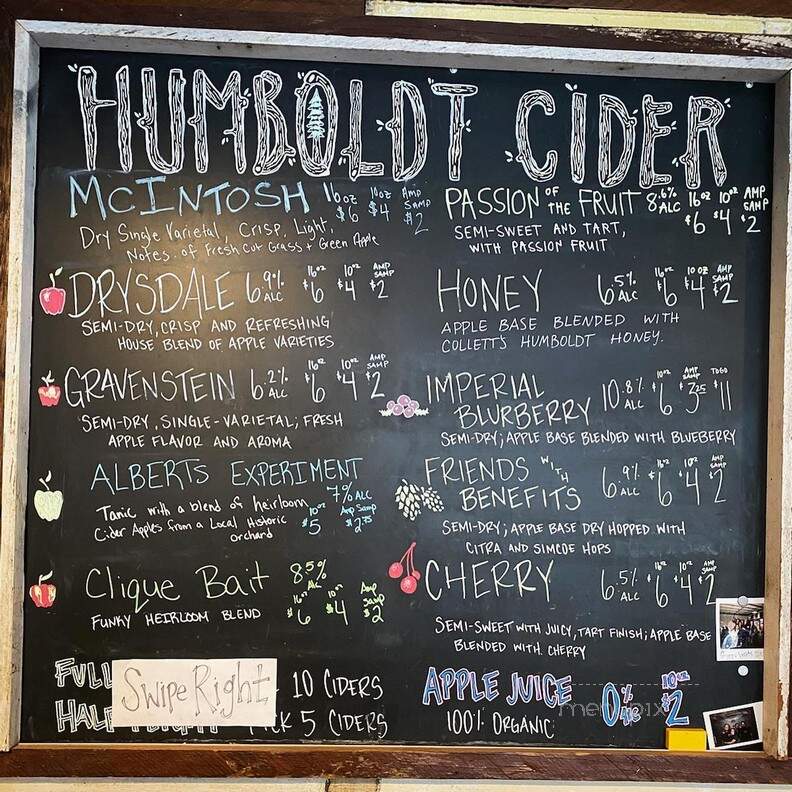 HUMBOLDT CIDER
McINTOSH 16oz $6 10oz $4 AMP SAMP $2
Dry Single Varietal, Crisp, Light,
Notes of Fresh Cut Grass + Green Apple
DRYSDALE 6.9% ALC 16oz $6 10oz $4 AMP SAMP $2
SEMI-DRY, CRISP AND REFRESHING
HOUSE BLEND OF APPLE VARIETIES
GRAVENSTEIN 6.2% ALC 16oz $6 10oz $4 AMP SAMP $2
SEMI-DRY, SINGLE-VARIETAL; FRESH
APPLE FLAVOR AND AROMA
ALBERTS EXPERIMENT
7% ALC
Tanic with a blend of heirloom
Cider Apples from a Local Historic
orchard
10oz $5 Amp Samp $2.75
Clique Bait 8.5% ALC
FUNKY HEIRLOOM BLEND
16oz $6 10oz $4 Amp Samp $2
FULL
Swipe Right
10 CIDERS
HALF
5 CIDERS
PASSION OF THE FRUIT 8.6% ALC 16oz $6 10oz $4 AMP SAMP $2
SEMI-SWEET AND TART,
WITH PASSION FRUIT
HONEY 6.5% ALC 16oz $6 10oz $4 AMP SAMP $2
APPLE BASE BLENDED WITH
COLLETT'S HUMBOLDT HONEY.
IMPERIAL
BLURBERRY
10.8% ALC 10oz $6 AMP SAMP $3.25 TOGO $11
SEMI-DRY; APPLE BASE BLENDED WITH BLUEBERRY
FRIENDS WITH
BENEFITS
6.9% ALC 16oz $6 10oz $4 AMP SAMP $2
SEMI-DRY; APPLE BASE DRY HOPPED WITH
CITRA AND SIMCOE HOPS
CHERRY 6.5% ALC 16oz $6 10oz $4 AMP SAMP $2
SEMI-SWEET WITH JUICY, TART FINISH; APPLE BASE
BLENDED WITH CHERRY
APPLE JUICE 0% ALC 10oz $2
100% ORGANIC
menupix